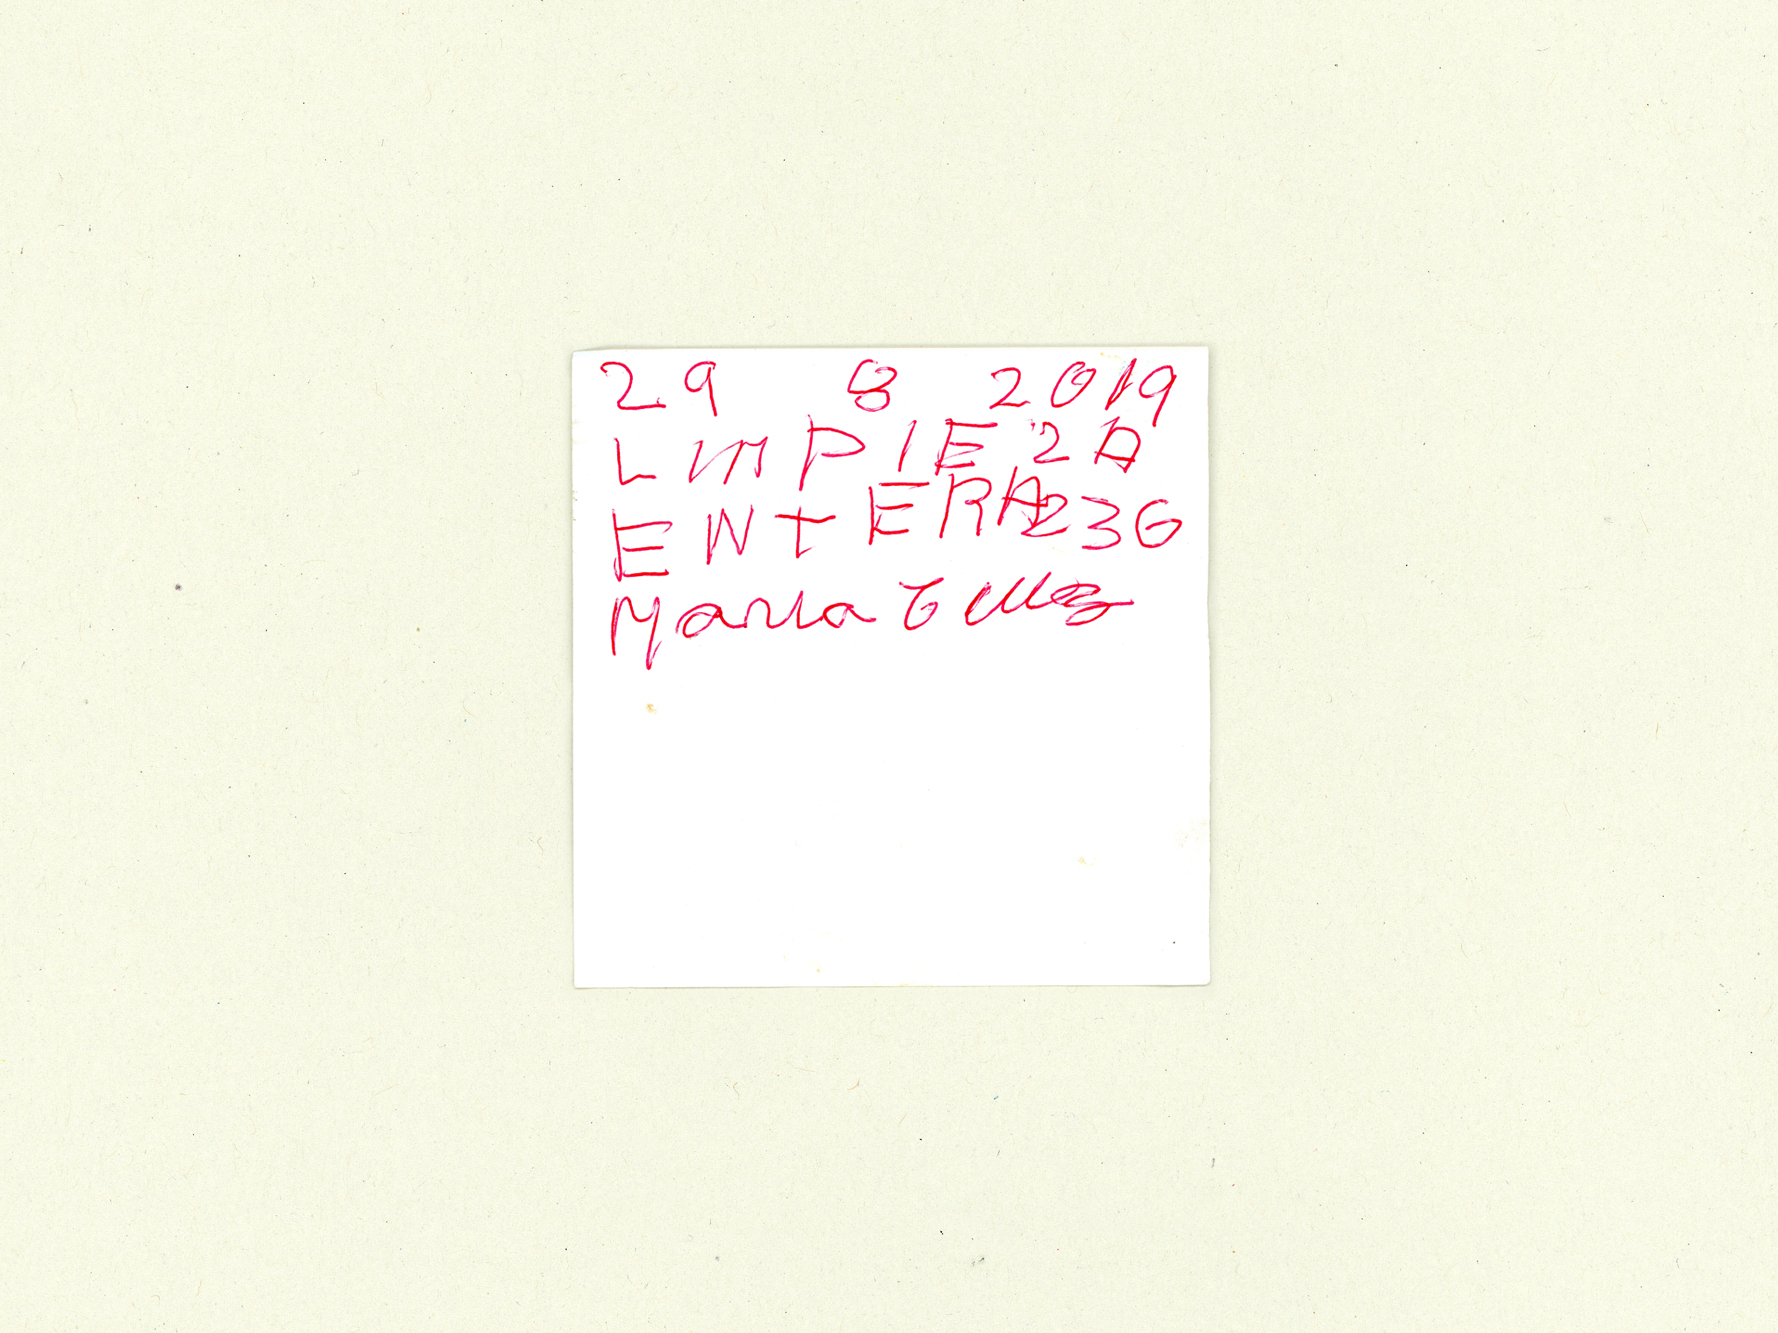 29 8 2019
LIMPIEZA
ENTERA 236
Maria Tellez